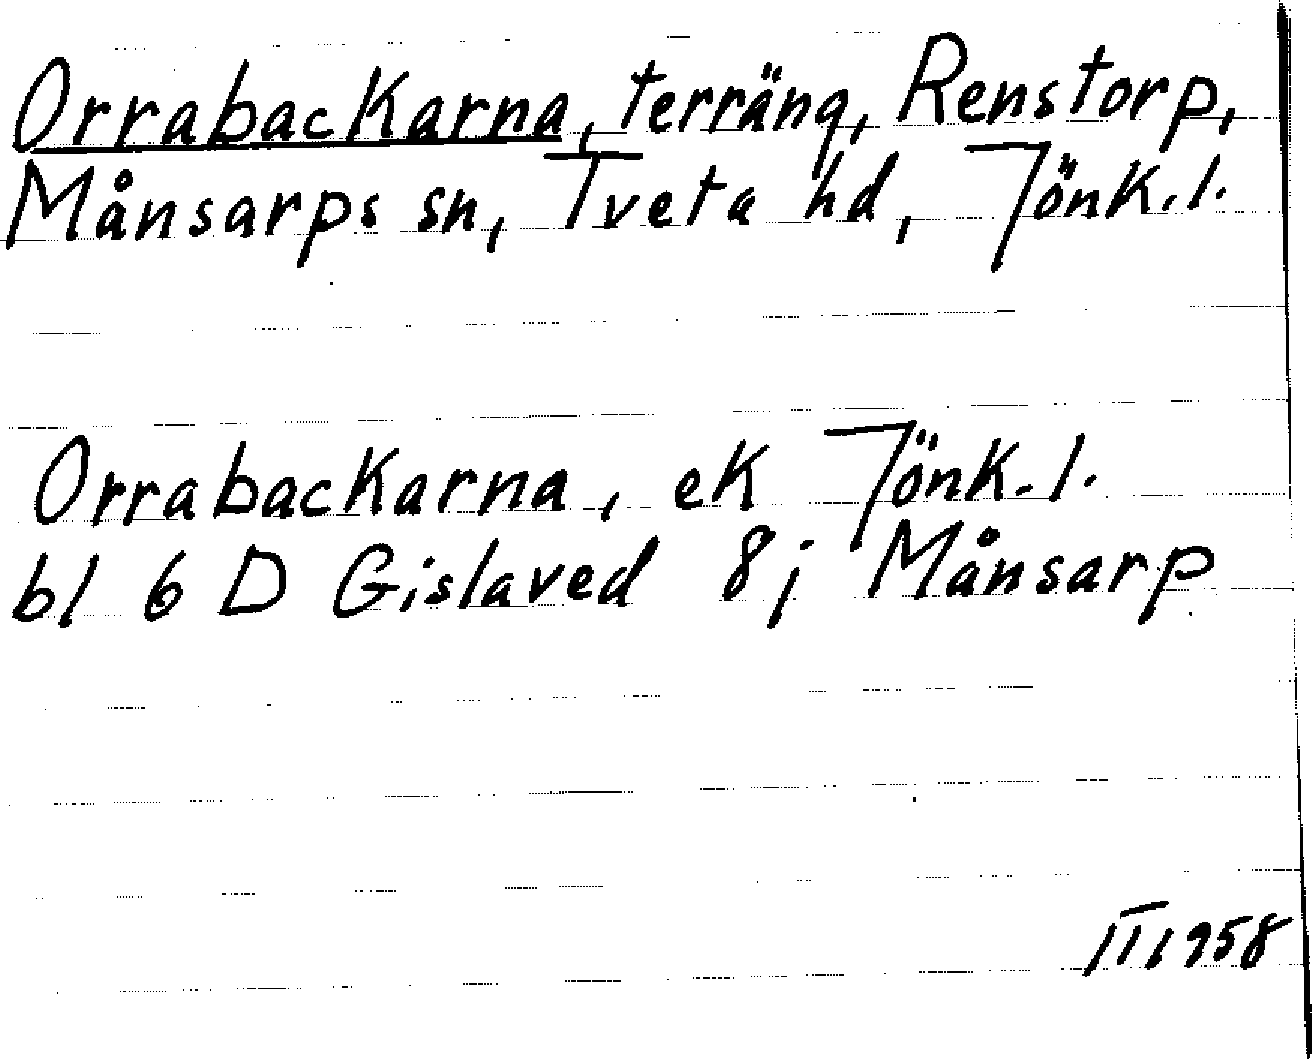 Orrabackarna, terräng, Renstorp,
Månsarps sn, Tveta hd, Jönk.l.
Orrabackarna, ek Jönk.l.
bl 6 D Gislaved 8j Månsarp